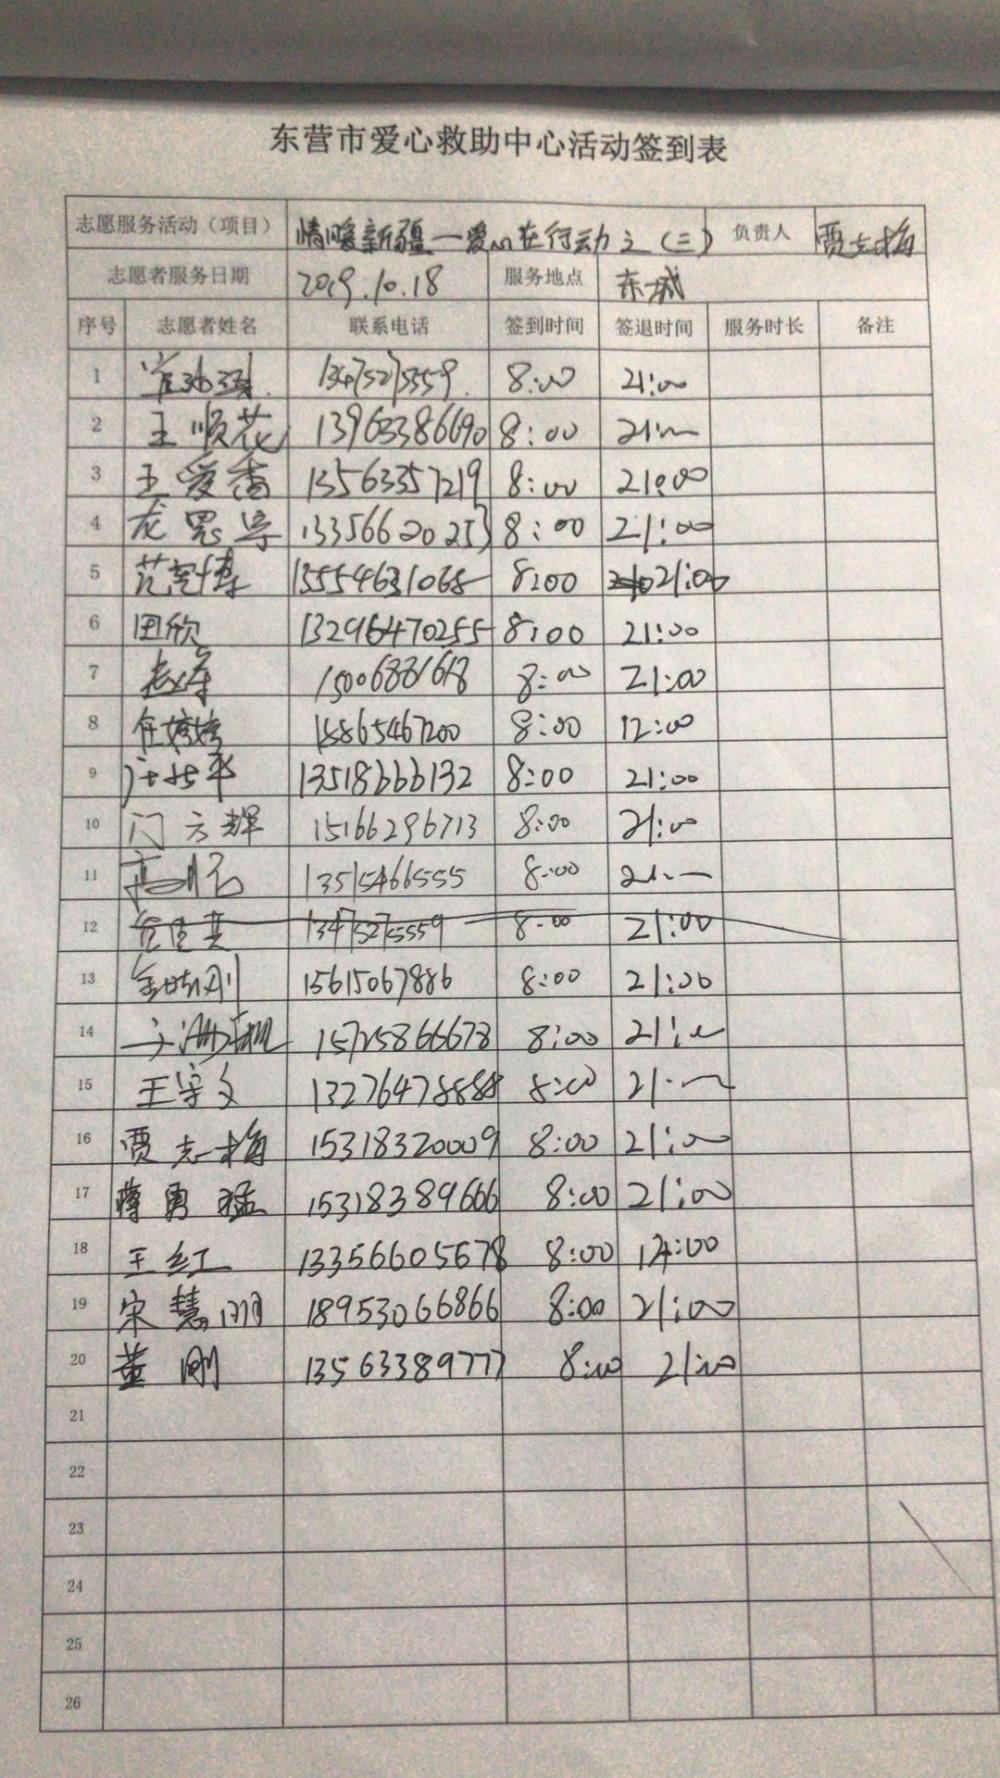 东营市爱心救助中心活动签到表
志愿服务活动（项目） 情暖新疆一爱心在行动之（三） 负责人 贾志梅
志愿者服务日期 2019.10.18 服务地点 东城
序号 志愿者姓名 联系电话 签到时间 签退时间 服务时长 备注
1 13475275559 8:00 21:00
2 王顺花 13963386690 8:00 21:00
3 王爱香 13563357219 8:00 21:00
4 龙思宇 13356620253 8:00 21:00
5 15554631065 8:00 21:00
6 田欣 13296470255 8:00 21:00
7 15006881618 8:00 21:00
8 任婷婷 15865467200 8:00 12:00
9 13518666132 8:00 21:00
10 门云辉 15166296713 8:00 21:00
11 13515466555 8:00 21:00
12 13475275559 8:00 21:00
13 15615067886 8:00 21:00
14 15725866678 8:00 21:00
15 王宗文 13276478888 8:00 21:00
16 贾志梅 15318320009 8:00 21:00
17 蒋勇猛 15318389666 8:00 21:00
18 王红 13356605678 8:00 14:00
19 宋慧丽 18953066866 8:00 21:00
20 董刚 13563389777 8:00 21:00
21
22
23
24
25
26